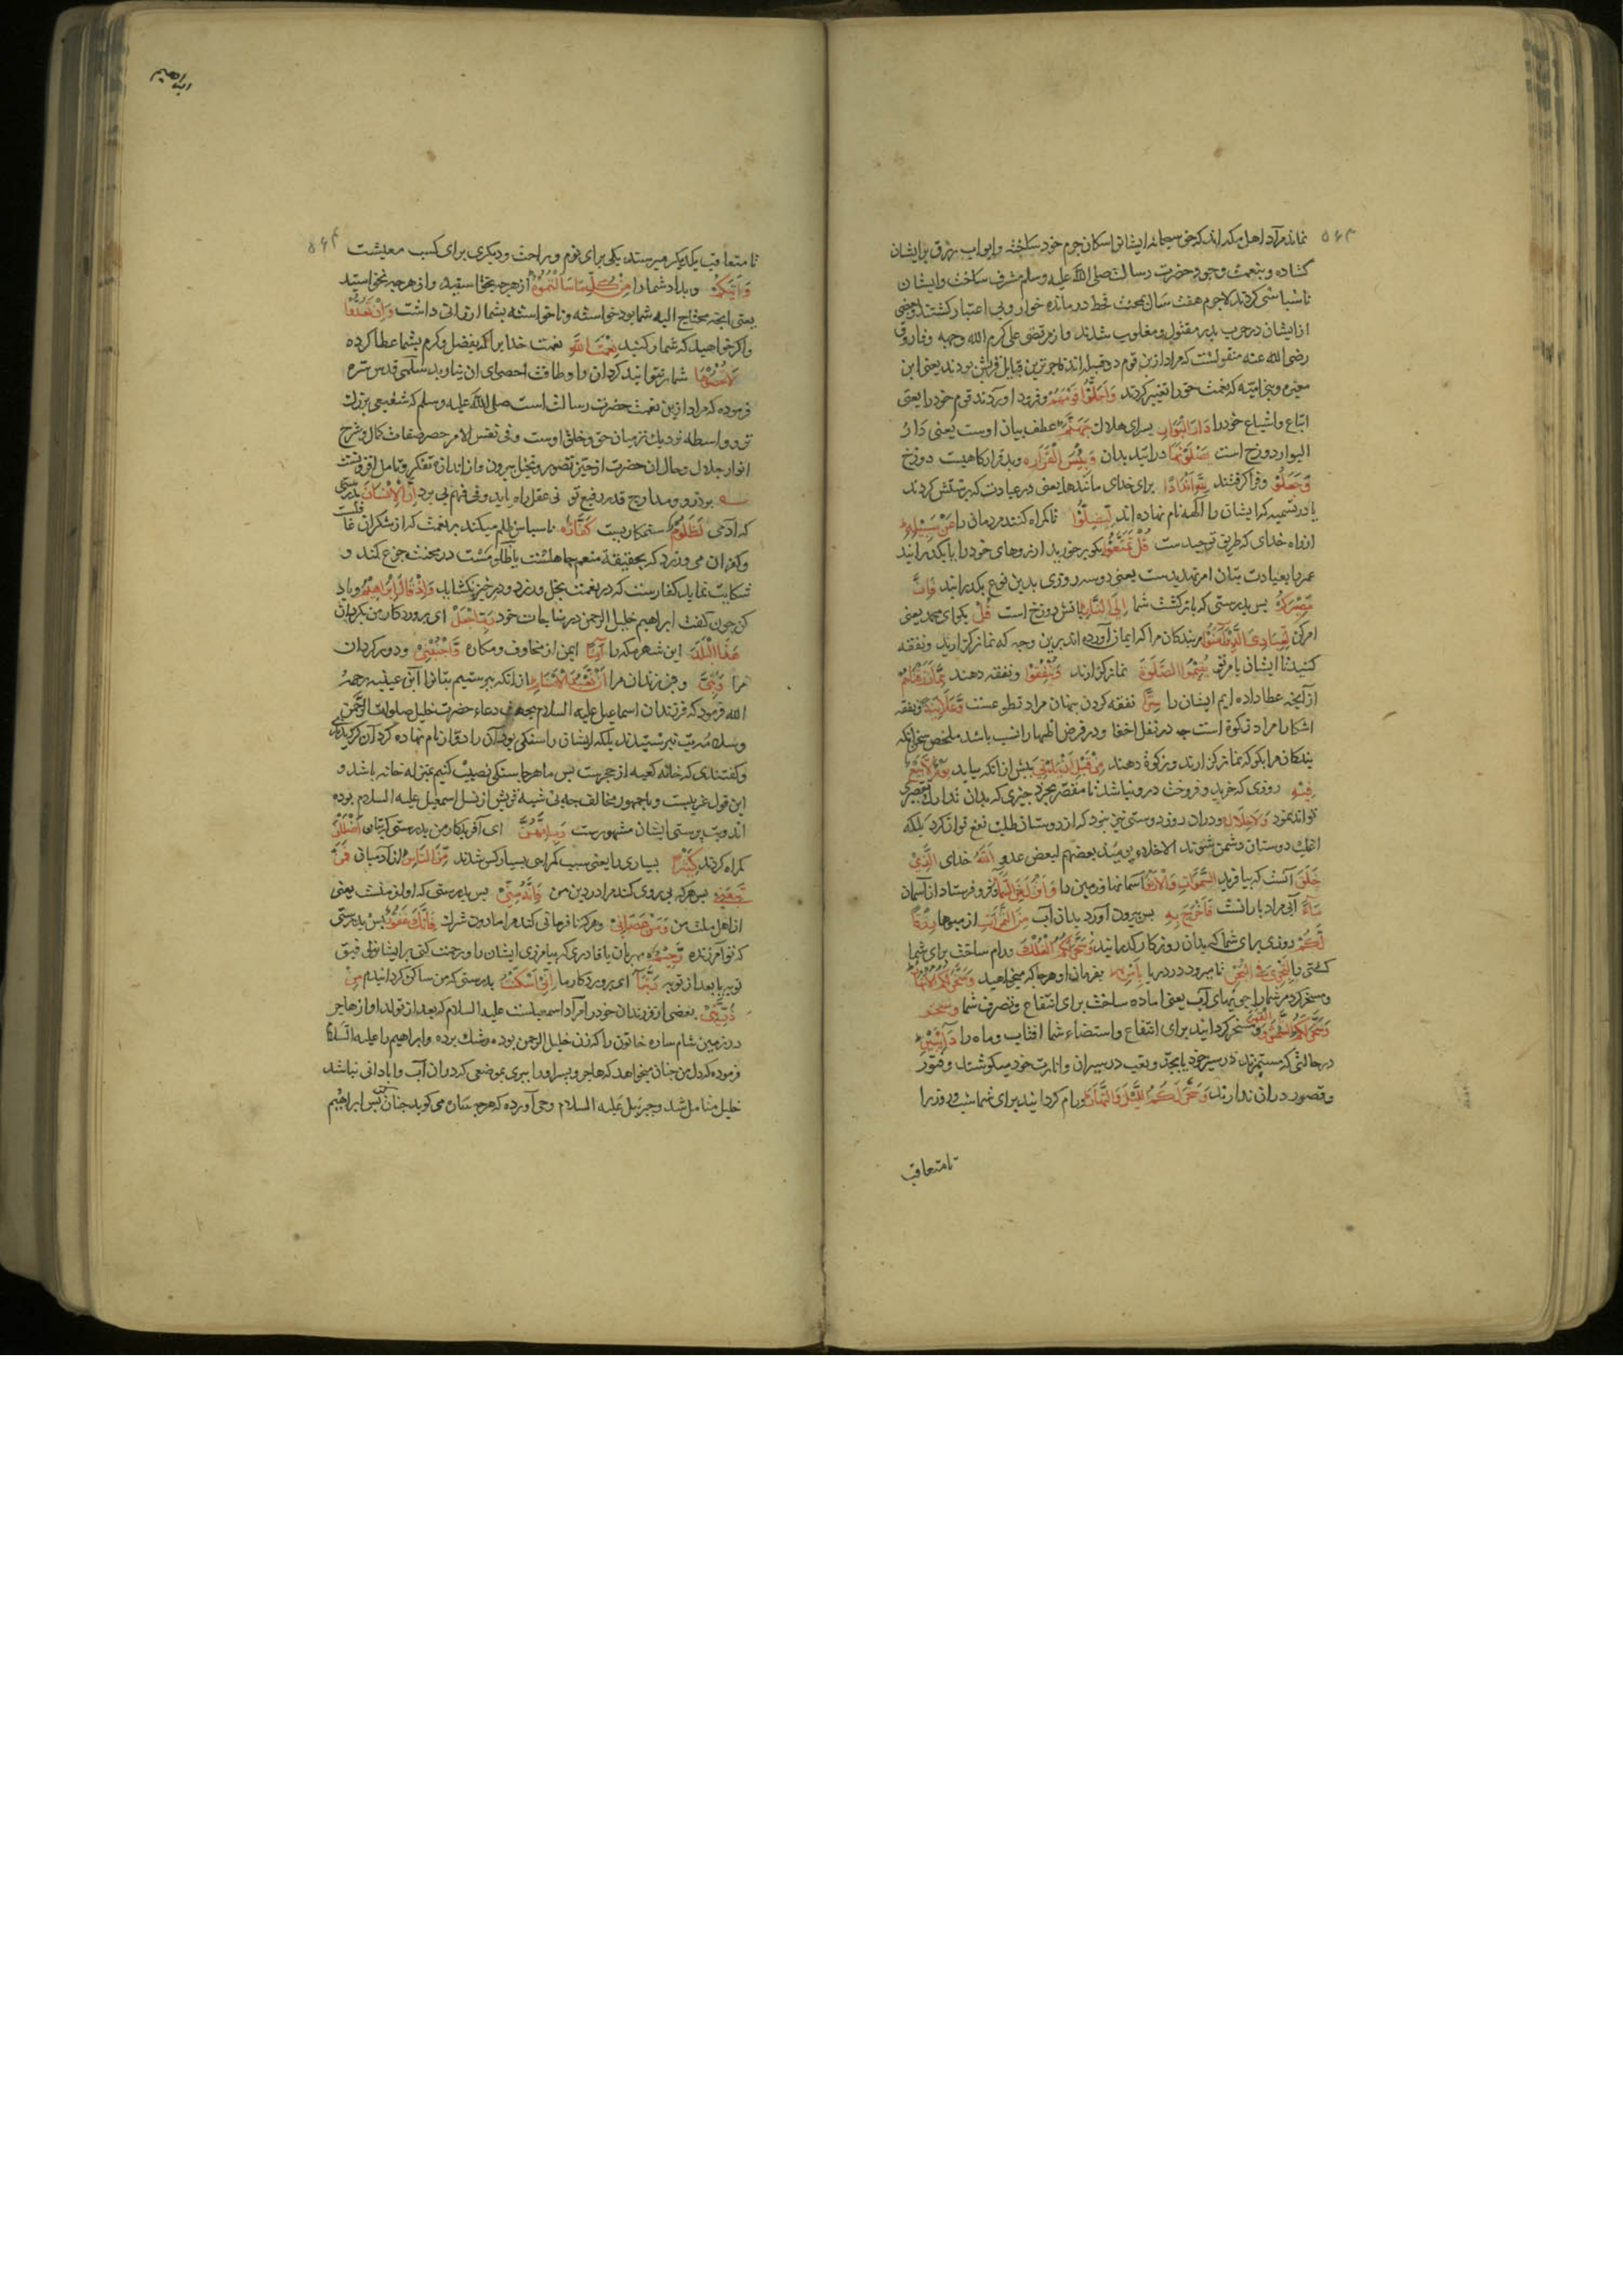 نماند مراد اهل مکه اند که حق سبحانه ایشانرا سکان حرم خود ساخته و ابواب رزق بر ایشان
کشاده و بنعمت وجود حضرت رسالت صلی الله علیه وسلم مشرف ساخت و ایشان
ناسپاسی کردند لاجرم هفت سال بمحنت قحط درمانده خوار و بی اعتبار کشتند و بعضی
از ایشان در حرب بدر مقتول و مغلوب شدند و از مرتضی علی کرم الله وجهه و فاروق
رضی الله عنه منقولست که مراد ازین قوم دو قبیله اند که فاجرترین قبایل قریش بودند یعنی ابن
مغیره و بنی امیه که نعمت حق را تغییر کردند وَاَحَلُّوْا قَوْمَهُمْ و فرود آوردند قوم خود را یعنی
اتباع و اشیاع خود را دَارَ الْبَوَارِ بسرای هلاک جَهَنَّمَ عطف بیان اوست یعنی دار
البوار دوزخ است یَصْلَوْنَهَا درایند بدان وَبِئْسَ الْقَرَارُ وبد قرارکاهیست دوزخ
وَجَعَلُوْا و فرا کرفتند لِلّٰهِ اَنْدَادًا برای خدای مانندها یعنی در عبادت که پرستش کردند
یا در تسمیه که ایشان را الهه نام نهاده اند لِیُضِلُّوْا تا کمراه کنند مردمان را عَنْ سَبِیْلِهِ
از راه خدای که طریق توحیدست قُلْ تَمَتَّعُوْا بکو برخورید از روهای خود را یا بکذرانید
عمر یا بعبادت بتان امر تهدیدست یعنی دو سه روزی بدین نوع بکذرانید فَاِنَّ
مَصِیْرَکُمْ پس بدرستی که بازکشت شما اِلَی النَّارِ باتش دوزخ است قُلْ بکو ای محمد یعنی
امر کن لِعِبَادِیَ الَّذِیْنَ اٰمَنُوْا مر بندکان مرا که ایمان آورده اند برین وجه که نماز کزارید و نفقه
کنید تا ایشان بامر تو یُقِیْمُوا الصَّلٰوةَ نماز کزارند وَیُنْفِقُوْا و نفقه دهند مِمَّا رَزَقْنٰهُمْ
از آنچه عطا داده ایم ایشان را سِرًّا نفقه کردن پنهان مراد تطوعست وَّعَلَانِیَةً و نفقه
اشکارا مراد زکوة است چه در نفل اخفا و در فرض اظهار انسب باشد ملخص سخن آنکه
بندکان مرا بکو که نماز کزارند و زکوة دهند مِنْ قَبْلِ اَنْ یَاْتِیَ پیش از آنکه بیاید یَوْمٌ لَا بَیْعٌ
فِیْهِ روزی که خرید و فروخت درو نباشد تا مقصر بخرد چیزی که بدان تدارک تقصیر
تواند نمود وَلَا خِلَالٌ و دران روز دوستی نیز نبود که از دوستان طلب نفع توان کرد بلکه
انجا دوستان دشمن شوند الاخلاء یومئذ بعضهم لبعض عدو اَللّٰهُ خدای الَّذِیْ
خَلَقَ آنست که بیافرید السَّمٰوٰتِ وَالْاَرْضَ آسمانها و زمین را وَاَنْزَلَ مِنَ السَّمَآءِ و فرو فرستاد از آسمان
مَآءً آبی مراد بارانست فَاَخْرَجَ بِهِ پس بیرون آورد بدان آب مِنَ الثَّمَرَاتِ از میوها رِزْقًا
لَّکُمْ روزی برای شما که بدان روزکار کذرانید وَسَخَّرَ لَکُمُ الْفُلْکَ و رام ساخت برای شما
کشتی را لِتَجْرِیَ فِی الْبَحْرِ تا میرود در دریا بِاَمْرِهِ بفرمان او هرجا که میخواهید وَسَخَّرَ لَکُمُ الْاَنْهَارَ
و مسخر کرد مر شما را جویهای آب یعنی اماده ساخت برای انتفاع و تصرف شما وسخر
وَسَخَّرَ لَکُمُ الشَّمْسَ وَالْقَمَرَ و مسخر کردانید برای انتفاع و استضاءة شما افتاب و ماه را دَآئِبَیْنِ
درحالتی که مستمرند در سیر خود یا بجد و تعب در سیران و انارت خود میکوشند و فتور
و قصور دران ندارند وَسَخَّرَ لَکُمُ اللَّیْلَ وَالنَّهَارَ و رام کردانید برای شما شب و روز را
تا متعاقب
ابراهیم
تا متعاقب یکدیکر میرسند یکی برای نوم و راحت و دیکری برای کسب معیشت
وَاٰتٰیکُمْ و بداد شما را مِنْ کُلِّ مَا سَاَلْتُمُوْهُ از هرچه بخواستید و از هرچه نخواستید
یعنی آنچه محتاج الیه شما بود خواسته و ناخواسته بشما ارزانی داشت وَاِنْ تَعُدُّوْا
و اکر خواهید که شمار کنید نِعْمَتَ اللّٰهِ نعمت خدایرا که بفضل و کرم بشما عطا کرده
لَا تُحْصُوْهَا شمار نتوانید کردن و طاقت احصای ان نیاورید سلمی قدس سره
فرموده که مراد ازین نعمت حضرت رسالت است صلی الله علیه وسلم که شفیعی بزرک
تر و واسطه نزدیک تر میان حق و خلق اوست و فی نفس الامر حصر صفات کمال و شرح
انوار جلال و جمال ان حضرت از حیز تصور و تخیل بیرون و از اندازه تفکر و تامل افزونست
بر ذروه معارج قدر رفیع تو نی عقل راه یابد و نی فهم پی برد اِنَّ الْاِنْسَانَ بدرستی
که آدمی لَظَلُوْمٌ ستمکاریست کَفَّارٌ ناسپاس ظلم میکند بر نعمت که از شکران غافلست
و کفران می ورزد که بحقیقة منعم جاهلست یا ظلومست در محنت جزع کند و
شکایت نماید کفارست که در نعمت بخل ورزد و در خیر نکشاید وَاِذْ قَالَ اِبْرٰهِیْمُ و یاد
کن چون کفت ابراهیم خلیل الرحمن در مناجات خود رَبِّ اجْعَلْ ای پروردکار من بکردان
هٰذَا الْبَلَدَ این شهر مکه را اٰمِنًا ایمن از مخاوف و مکاره وَّاجْنُبْنِیْ و دور کردان
مرا وَبَنِیَّ و فرزندان مرا اَنْ نَعْبُدَ الْاَصْنَامَ از آنکه پرستیم بتانرا ابن عیینه رحمه
الله فرمود که فرزندان اسماعیل علیه السلام بجهت دعاء حضرت خلیل صلوات الرحمن
و سلامه بت نپرستیدند بلکه ایشان را سنکی بود آن را دوار نام نهاده کرد آن کردیدندی
و کفتندی که خانه کعبه از حجرست پس ما هرجا سنکی نصب کنیم بمنزله خانه باشد و
این قول غریبست و با جمهور مخالف چه بی شبهه قریش از نسل اسمعیل علیه السلام بوده
اند و بت پرستی ایشان مشهورست رَبِّ اِنَّهُنَّ ای آفریدکار من بدرستی که بتان اَضْلَلْنَ
کمراه کردند کَثِیْرًا بسیاری را یعنی سبب کمراهی بسیار کس شدند مِّنَ النَّاسِ از آدمیان فَمَنْ
تَبِعَنِیْ پس هرکه پی روی کند مرا در دین من فَاِنَّهُ مِنِّیْ پس بدرستی که او از منست یعنی
از اهل ملت من وَمَنْ عَصَانِیْ و هرکه نافرمانی کند مرا مادون شرک فَاِنَّکَ غَفُوْرٌ پس بدرستی
که تو آمرزنده رَّحِیْمٌ مهربان یا قادری که بیامرزی ایشان را و رحمت کنی بر ایشان بتوفیق
توبه یا بعد از توبه رَبَّنَآ ای پروردکار ما اِنِّیْ اَسْکَنْتُ بدرستی که من ساکن کردانیدم مِنْ
ذُرِّیَّتِیْ بعضی از فرزندان خود را مراد اسمعیلست علیه السلام که بعد از تولد او از هاجر
در زمین شام ساره خاتون را که زن خلیل الرحمن بوده رشک برده و ابراهیم را علیه السلام
فرموده که دل من چنان میخواهد که هاجر و پسر او را ببری بموضعی که دران آب و آبادانی نباشد
خلیل متامل شد و جبرئیل علیه السلام وحی آورده که هرچه ساره می کوید چنان کن پس ابراهیم